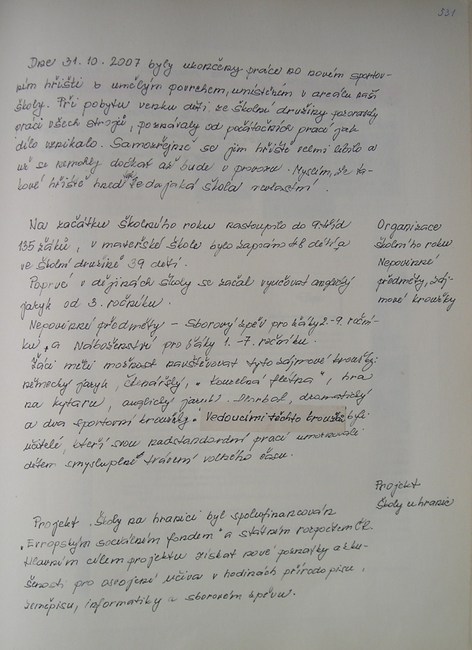 331
Dne 31.10.2007 byly ukončeny práce na novém sportov-
ním hřišti s umělým povrchem, umístěném v areálu naší
školy. Při pobytu venku děti ze školní družiny pozorovaly
práci všech strojů, poznávaly od počátečních prací jak
dílo vznikalo. Samozřejmě se jim hřiště velmi líbilo a
už se nemohly dočkat až bude v provozu. Myslím, že ta-
kové hřiště hned tak ledajaká škola nevlastní.
Na začátku školního roku nastoupilo do 9 tříd
135 žáků, v mateřské škole bylo zapsáno dětí a
ve školní družině 39 dětí.
Poprvé v dějinách školy se začal vyučovat anglický
jazyk od 3. ročníku.
Nepovinné předměty - Sborový zpěv pro žáky 2.-9. roční-
ku, a Náboženství pro žáky 1.-7. ročníku.
Žáci měli možnost navštěvovat tyto zájmové kroužky:
německý jazyk, čtenářský, "kouzelná flétna", hra
na kytaru, anglický jazyk, dramatický
a dva sportovní kroužky. Vedoucími těchto kroužků byli
učitelé, kteří svou nadstandardní prací umožňovali
dětem smysluplné trávení volného času.
Organizace
školního roku
Nepovinné
předměty, záj-
mové kroužky
Projekt
Školy u hranic
Projekt Školy na hranici byl spolufinancován
"Evropským sociálním fondem" a státním rozpočtem ČR.
Hlavním cílem projektu získat nové poznatky a zku-
šenosti pro osvojení učiva v hodinách přírodopisu,
zeměpisu, informatiky a sborovém zpěvu.